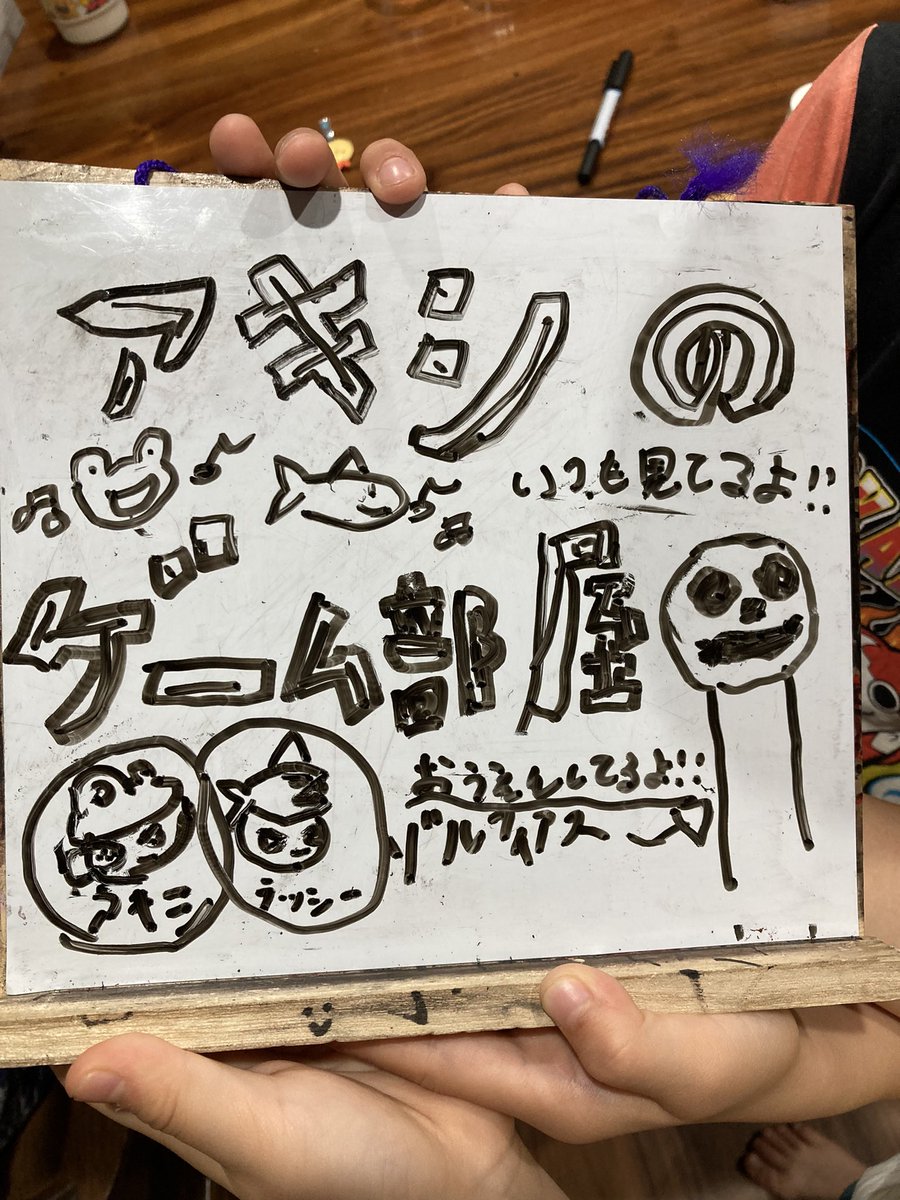 アキシの
いつも見てるよ!!
ゲーム部屋
おうえんしてるよ!!
バルフィアス
アキシ
ラッシー